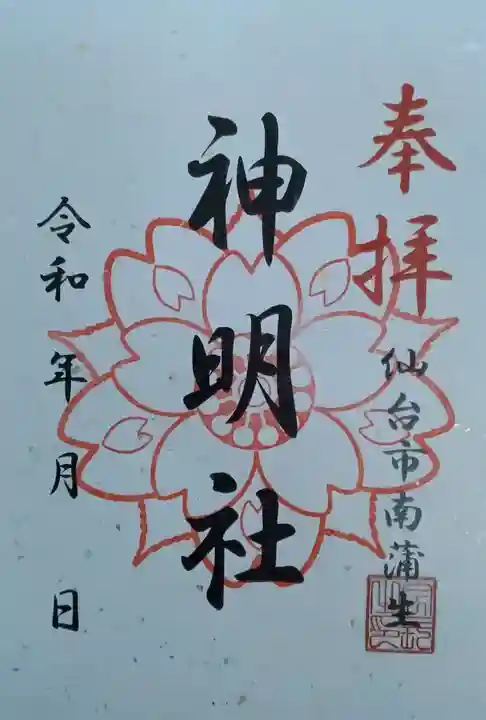 奉拝
仙台市南蒲生
神明社
令和 年 月 日